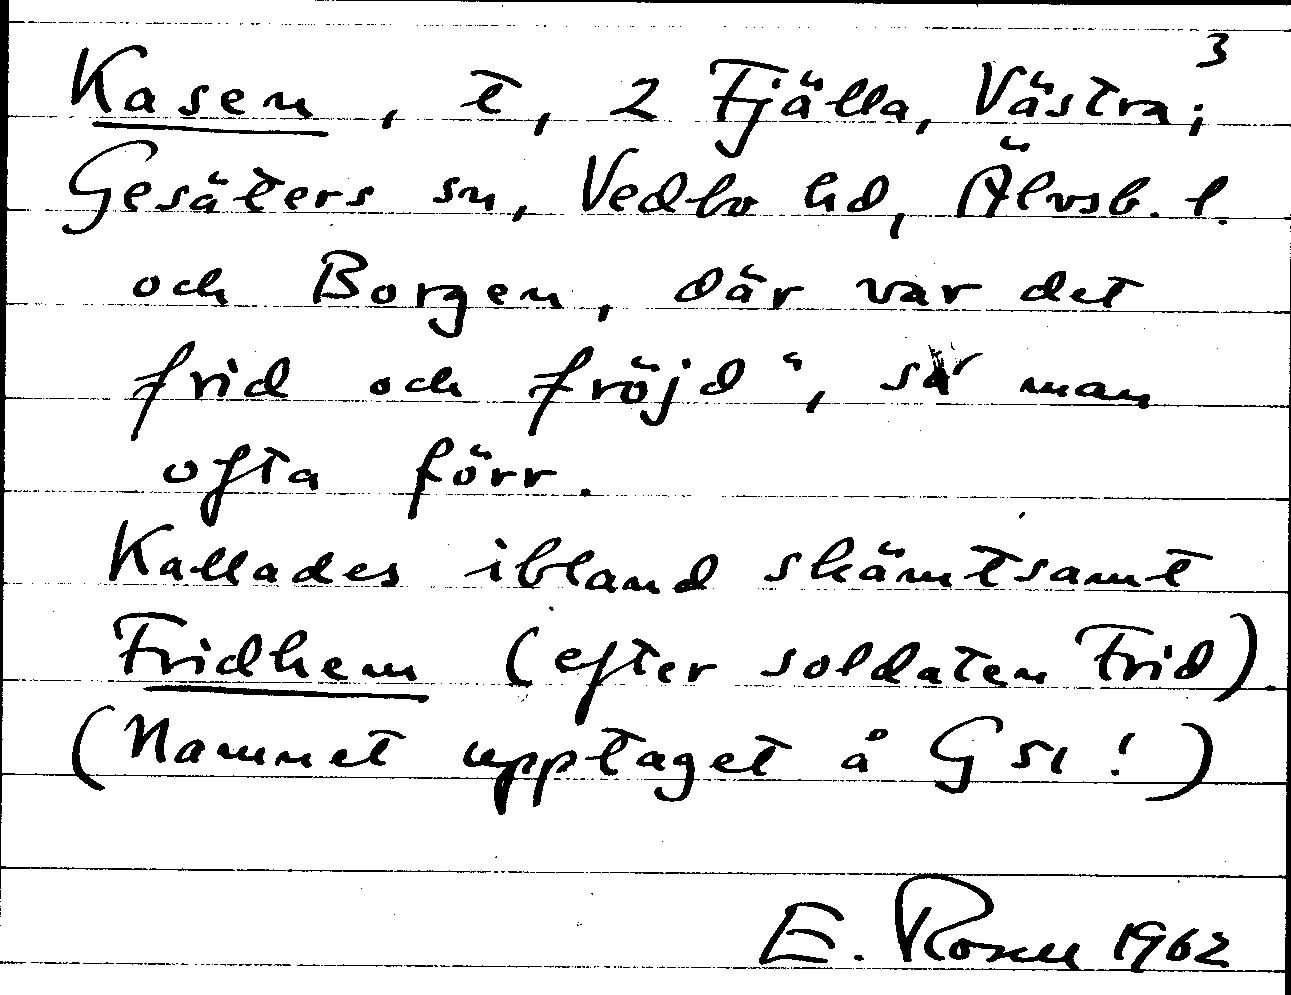 3
Kasen, t, 2 Fjälla, Västra;
Gesäters sn, Vedbo hd, Älvsb. l.
och Borgen, där var det
frid och fröjd", sa man
ofta förr.
Kallades ibland skämtsamt
Fridhem (efter soldaten Frid).
(Namnet upptaget å Gsl!)
E. Rosell 1962